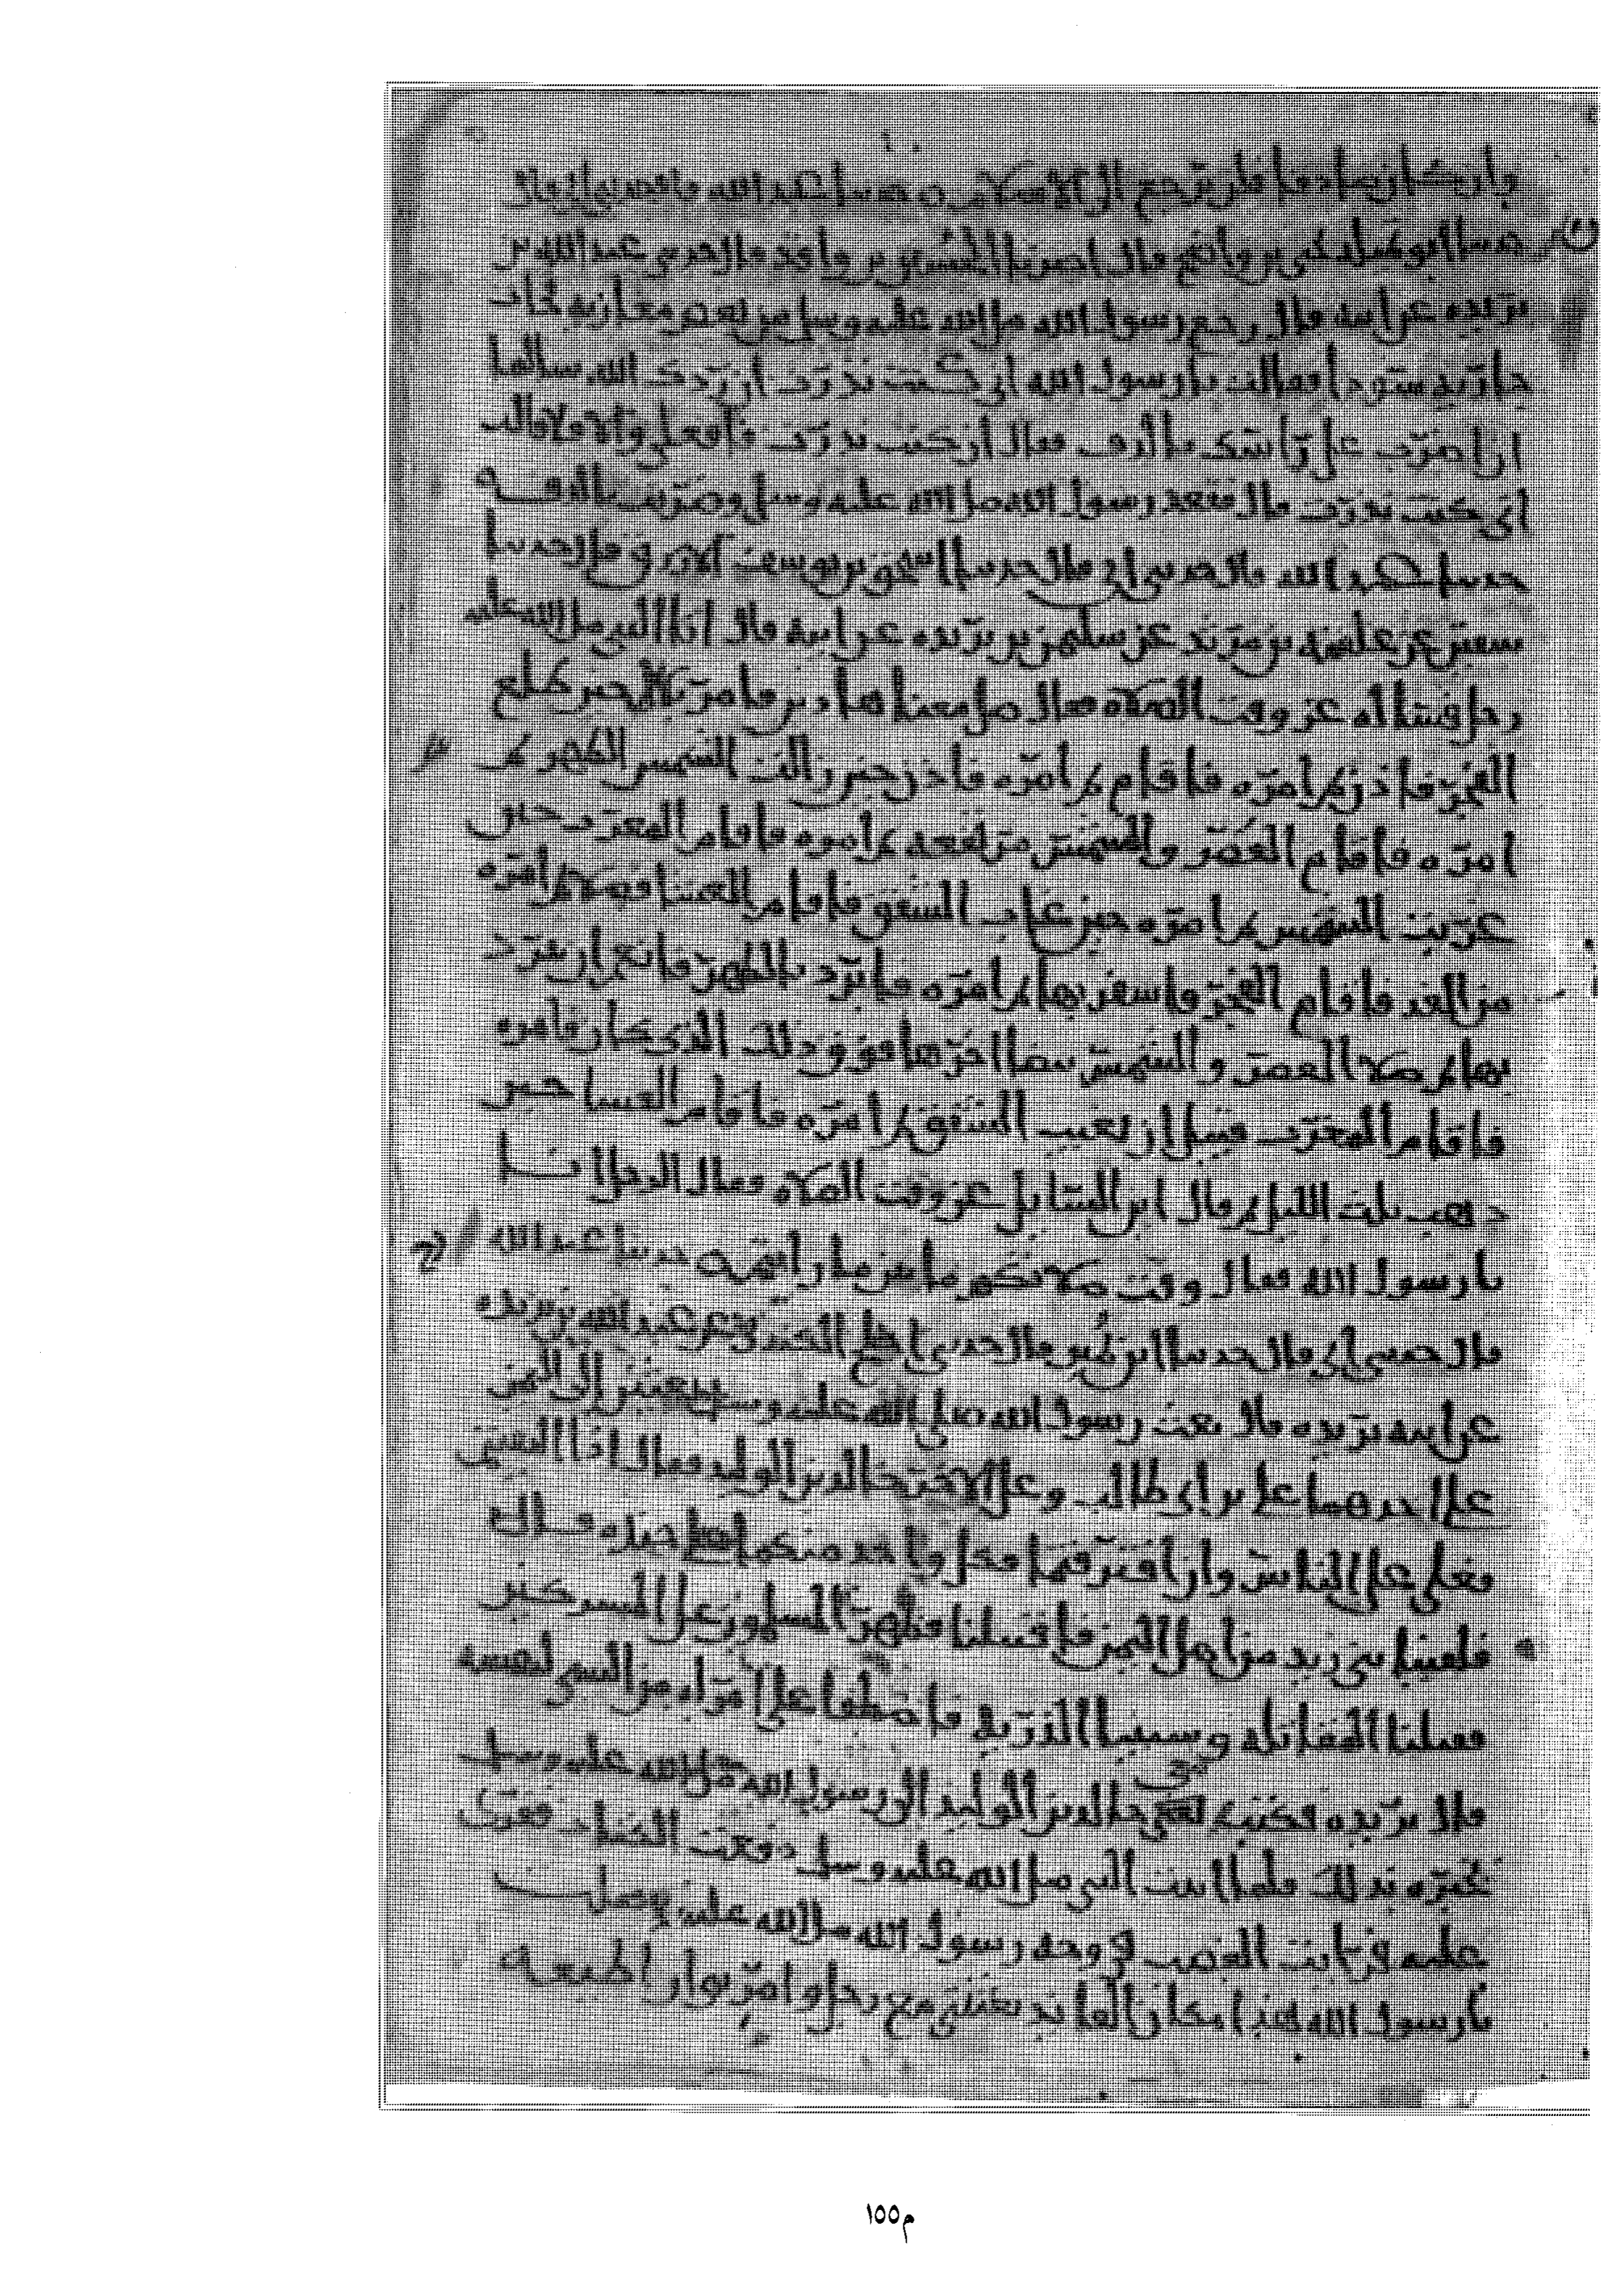 وان كان صادقا فلن ترجع الى الاسلام حدثنا عبد الله
حدثنا ابو تميلة يحيى بن واضح قال اخبرنا الحسين بن واقد قال حدثني عبد الله بن
بريده عن ابيه قال رجع رسول الله صلى الله عليه وسلم من بعض مغازيه فجات
جاريه سودا فقالت يا رسول الله اني كنت نذرت ان ردك الله سالما
ان اضرب على راسك بالدف فقال ان كنت نذرت فافعلي والا فلا قالت
اني كنت نذرت قال فقعد رسول الله صلى الله عليه وسلم وضربت بالدف
حدثنا عبد الله قال حدثني ابي قال حدثنا اسحق بن يوسف الازرق قال حدثنا
سفين عن علقمه بن مرثد عن سليمن بن بريده عن ابيه قال اتا النبي صلى الله عليه
رجل فسأله عن وقت الصلاه فقال صل معنا هاذين فامر بلالا حين طلع
الفجر فاذن ثم امره فاقام ثم امره فاذن حين زالت الشمس الظهر ثم
امره فاقام العصر والشمس مرتفعه ثم امره فاقام المغرب حين
غربت الشمس ثم امره حين غاب الشفق فاقام العشا فصلا ثم امره
من الغد فاقام الفجر فاسفر بها ثم امره فابرد بالظهر فانعم ان يبرد
بها ثم صلا العصر والشمس بيضا اخرها فوق ذلك الذي كان فامره
فاقام المغرب قبل ان يغيب الشفق ثم امره فاقام العشا حين
ذهب ثلث الليل ثم قال اين السايل عن وقت الصلاه فقال الرجل انا
يا رسول الله فقال وقت صلاتكم ما بين ما رايتم حدثنا عبد الله
قال حدثني ابي قال حدثنا ابن نمير قال حدثني اجلح الكندي عن عبد الله بن بريده
عن ابيه بريده قال بعث رسول الله صلى الله عليه وسلم بعثين الى اليمن
على احدهما علي بن ابي طالب وعلى الاخر خالد بن الوليد فقال اذا التقيتم
فعلي على الناس وان افترقتما فكل واحد منكما على جنده قال
فلقينا بني زيد من اهل اليمن فاقتتلنا فظهر المسلمون على المشركين
فقتلنا المقاتله وسبينا الذريه فاصطفا علي امراه من السبي لنفسه
قال بريده فكتب معي خالد بن الوليد الى رسول الله صلى الله عليه وسلم
يخبره بذلك فلما اتيت النبي صلى الله عليه وسلم دفعت الكتاب فقرئ
عليه فرايت الغضب في وجه رسول الله صلى الله عليه فقلت
يا رسول الله هذا مكان العايذ بعثتني مع رجل وامرتني ان اطيعه
م١٥٥